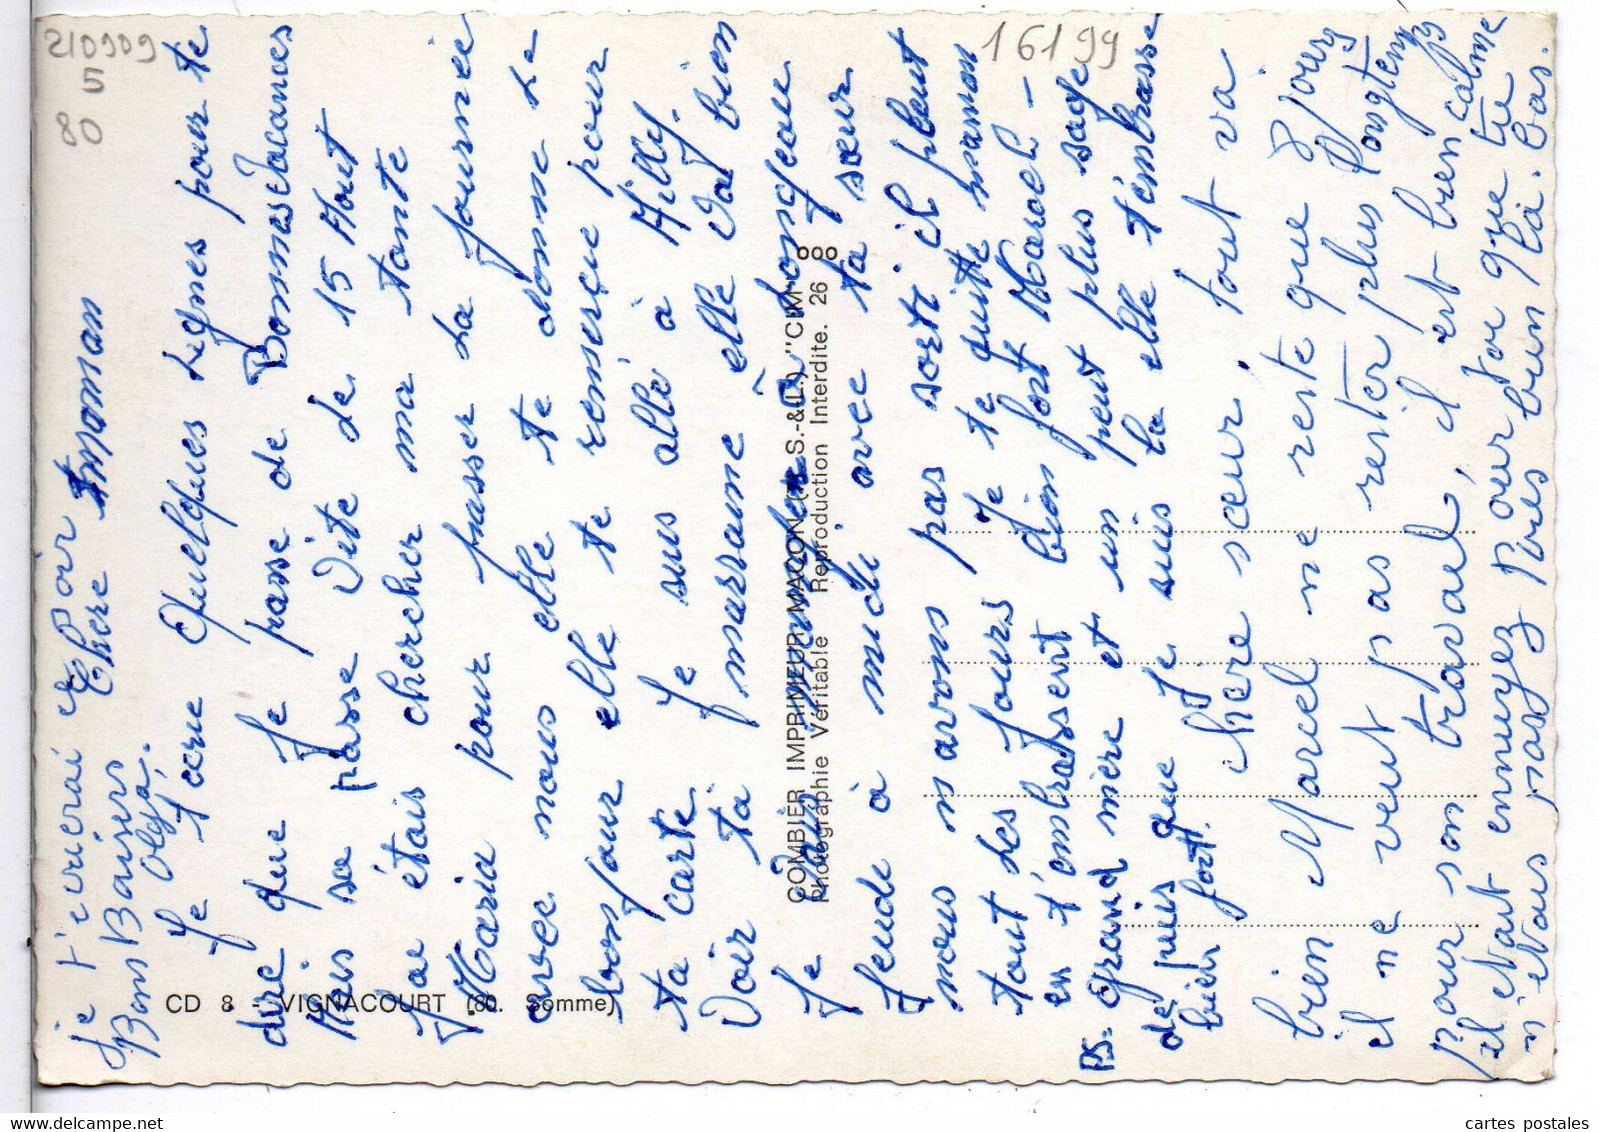 210909
5
80
16199
Chère maman
Je t'écrie Quelques Lignes pour te
dire que Je passe de Bonnes Vacances
Mais sa passe Vite de 15 Aout
J'ae étais chercher ma tante
Maria pour passer La Journée
avec nous elle te donne Le
bonjour elle te remerçie pour
ta carte Je suis allé à Ailly
Voir ta marraine elle Va bien
Je vais a Longeau
Jeudi à midi avec ta sœur
nous n'avons pas sorti il pleut
tout les Jours Je te quitte maman
en t'embrassent bien fort Marcel -
P.S. Grand mère et un peut plus sage
depuis que Je suis la elle t'embrasse
bien fort.
Chère sœur. Tout va
bien Marcel ne reste que 8 jours
il ne veut pas rester plus Longtemps
Pour son travail, il est bien calme
il etait ennuyez pour toi que tu
n'etais pas bien là. bas.
je t'ecrierai ce soir
Bons Baisers
Olga.
CD 8 - VIGNACOURT (80. Somme)
COMBIER IMPRIMEUR MACON (S.-&-L.) "CIM"
Photographie Véritable Reproduction Interdite. 26
cartes postales